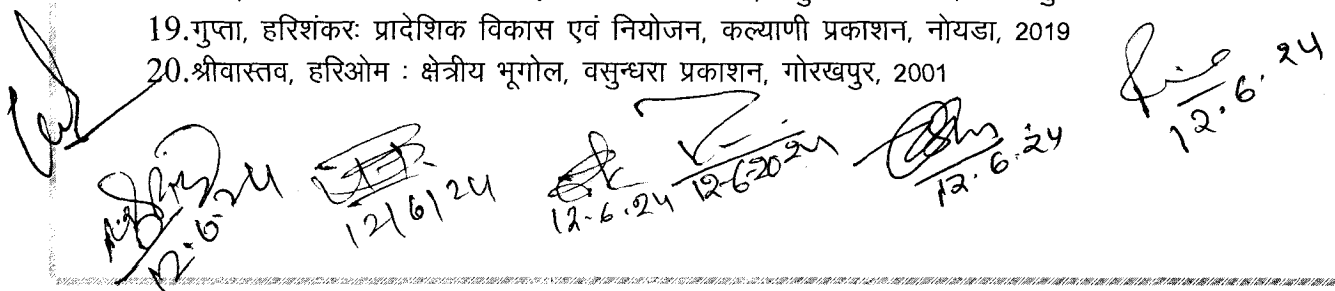 19.गुप्ता, हरिशंकरः प्रादेशिक विकास एवं नियोजन, कल्याणी प्रकाशन, नोयडा, 2019
20.श्रीवास्तव, हरिओम : क्षेत्रीय भूगोल, वसुन्धरा प्रकाशन, गोरखपुर, 2001
12.6.24
12/6/24
12.6.24
12-6-2024
12.6.24
12.6.24